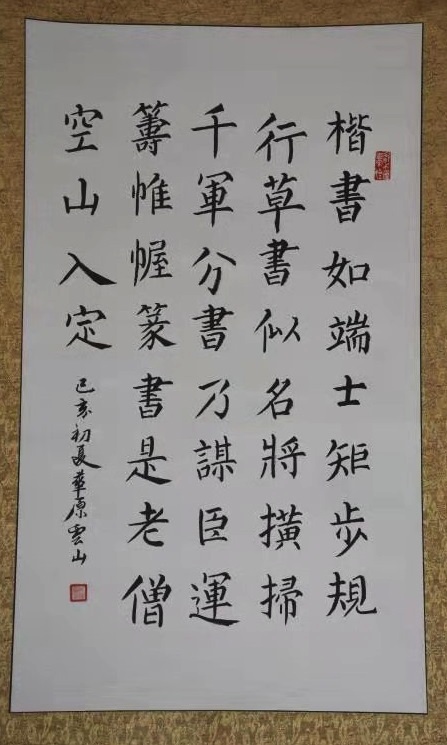 楷書如端士矩步規
行草書似名將橫掃
千軍分書乃謀臣運
籌帷幄篆書是老僧
空山入定
己亥初夏華原雲山